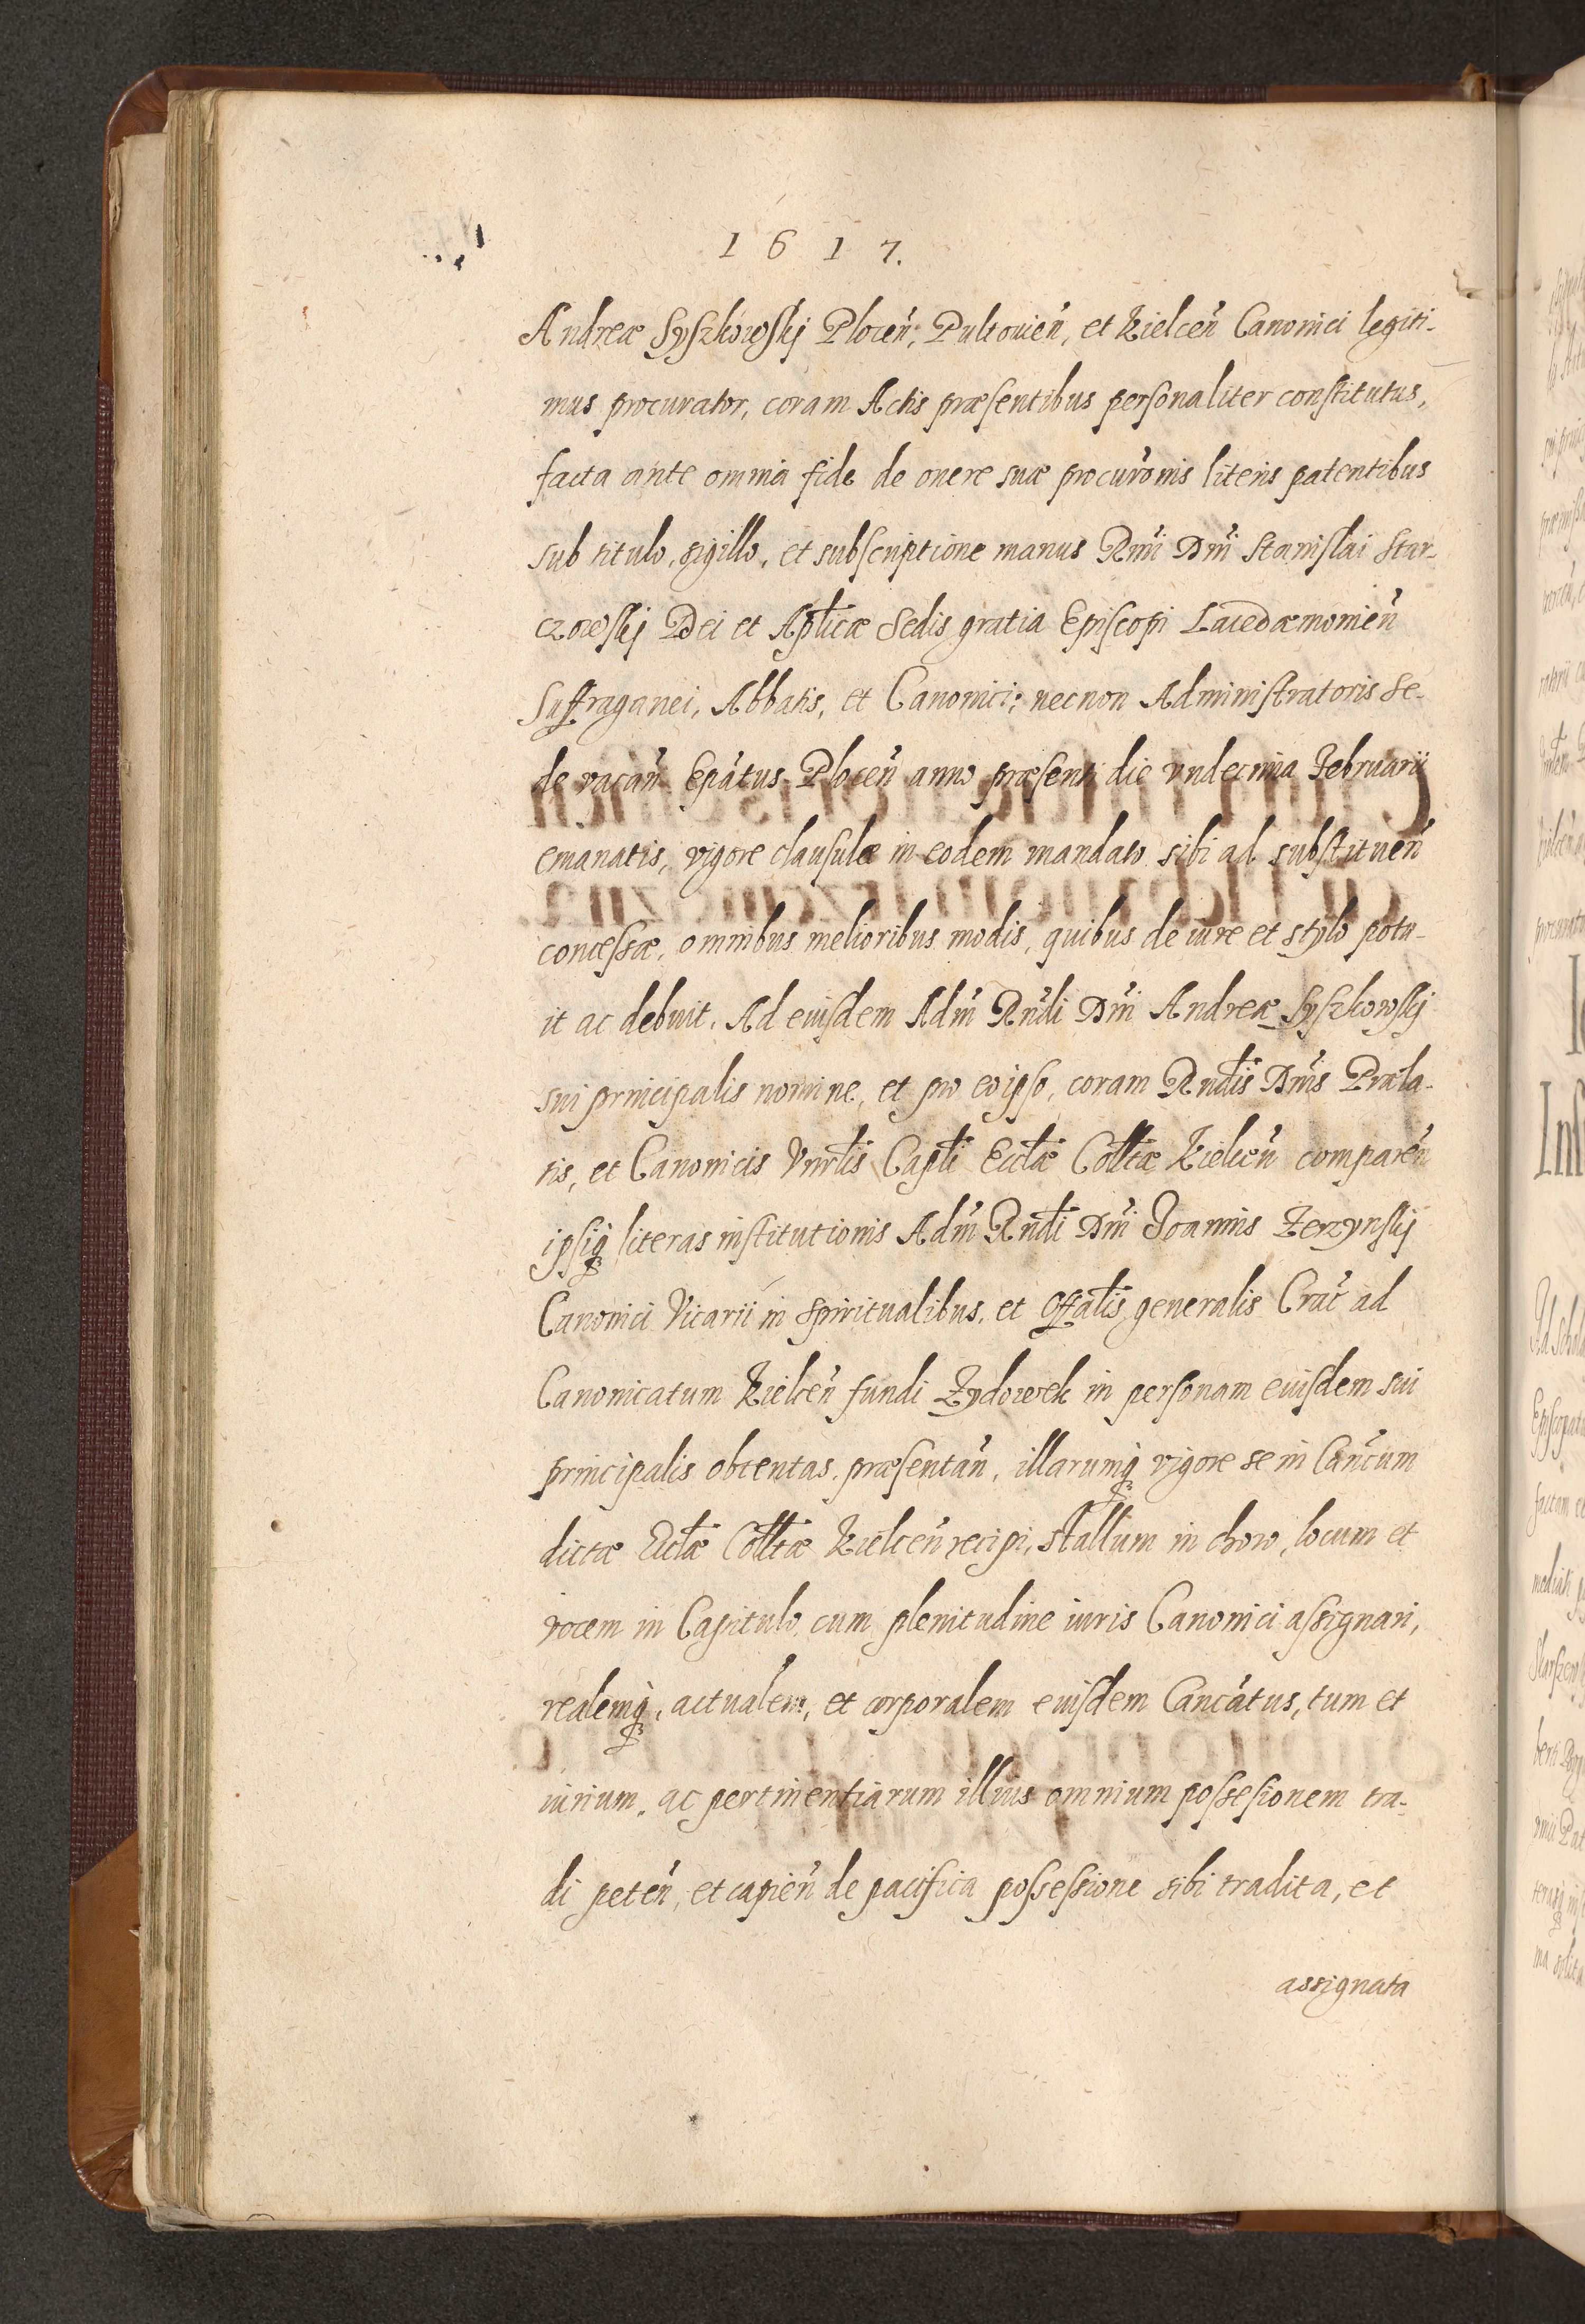 1617.
Andreæ Lyſzkowſkj Plocen̄, Pultovien̄, et Kielcen̄ Canonici legiti-
mus procurator, coram Actis præſentibus perſonaliter conſtitutus,
facta ante omnia fide de onere suæ procurōnis literis patentibus
sub titulo, sigillo, et subſcriptione manus Rm̄i Dn̄i Staniſlai Star-
czowſkj Dei et Apl̄icæ Sedis gratia Epiſcopi Lacedæmonien̄
Suffraganei, Abbatis, et Canonici; necnon Adminiſtratoris Se-
de vacan̄ Epātus Plocen̄ anno præſenti die vndecima Februarii
emanatis, vigore clauſulæ in eodem mandato sibi ad subſtituen̄
conceſsæ, omnibus melioribus modis, quibus de iure et stylo potu-
it ac debuit. Ad eiuſdem Adm̄ Rn̄di Dn̄i Andreæ Lyſzkowſkj
sui principalis nomine, et pro eo ipſo, coram Rndīs Dn̄is Præla-
tis, et Canonicis Vnīrlis Capl̄i Eccl̄æ Coll̄tæ Kielcen̄ comparen̄
ipſiq̨ literas inſtitutionis Adm̄ Rndī Dn̄i Joannis Zerzynſkj
Canonici Vicarii in Spiritualibus, et Offālis generalis Crac̄ ad
Canonicatum Kielcen̄ fundi Zydowek in perſonam eiuſdem sui
principalis obtentas, præſentan̄, illarumq̨ vigore se in Can̄cum
dictæ Eccl̄æ Coll̄tæ Kielcen̄ recipi, stallum in choro, locum et
vocem in Capitulo, cum plenitudine iuris Canonici aſsignari,
realemq̨, actualem, et corporalem eiuſdem Cancātus, tum et
iurium, ac pertinentiarum illius omnium poſseſsionem tra-
di peten̄, et capien̄ de pacifica poſseſsione sibi tradita, et
assignata